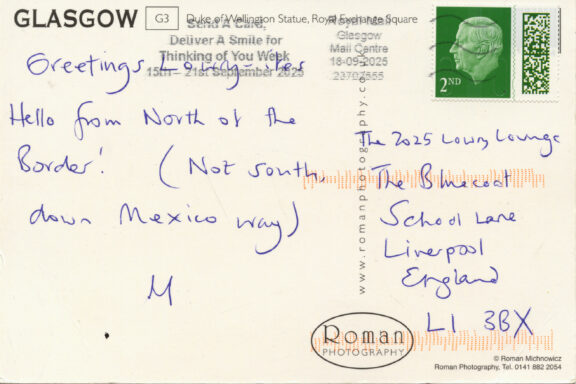 GLASGOW G3 Duke of Wellington Statue, Royal Exchange Square
Send A Card,
Deliver A Smile for
Thinking of You Week
15th - 21st September 2025
Royal Mail
Glasgow
Mail Centre
18-09-2025
2ND
Greetings Lowry-ites
Hello from North of the
Border! (Not south,
down Mexico way)
M
www.romanphotography.co
The 2025 Lowry Lounge
The Bluecoat
School Lane
Liverpool
England
L1 3BX
Roman
PHOTOGRAPHY
© Roman Michnowicz
Roman Photography, Tel. 0141 882 2054